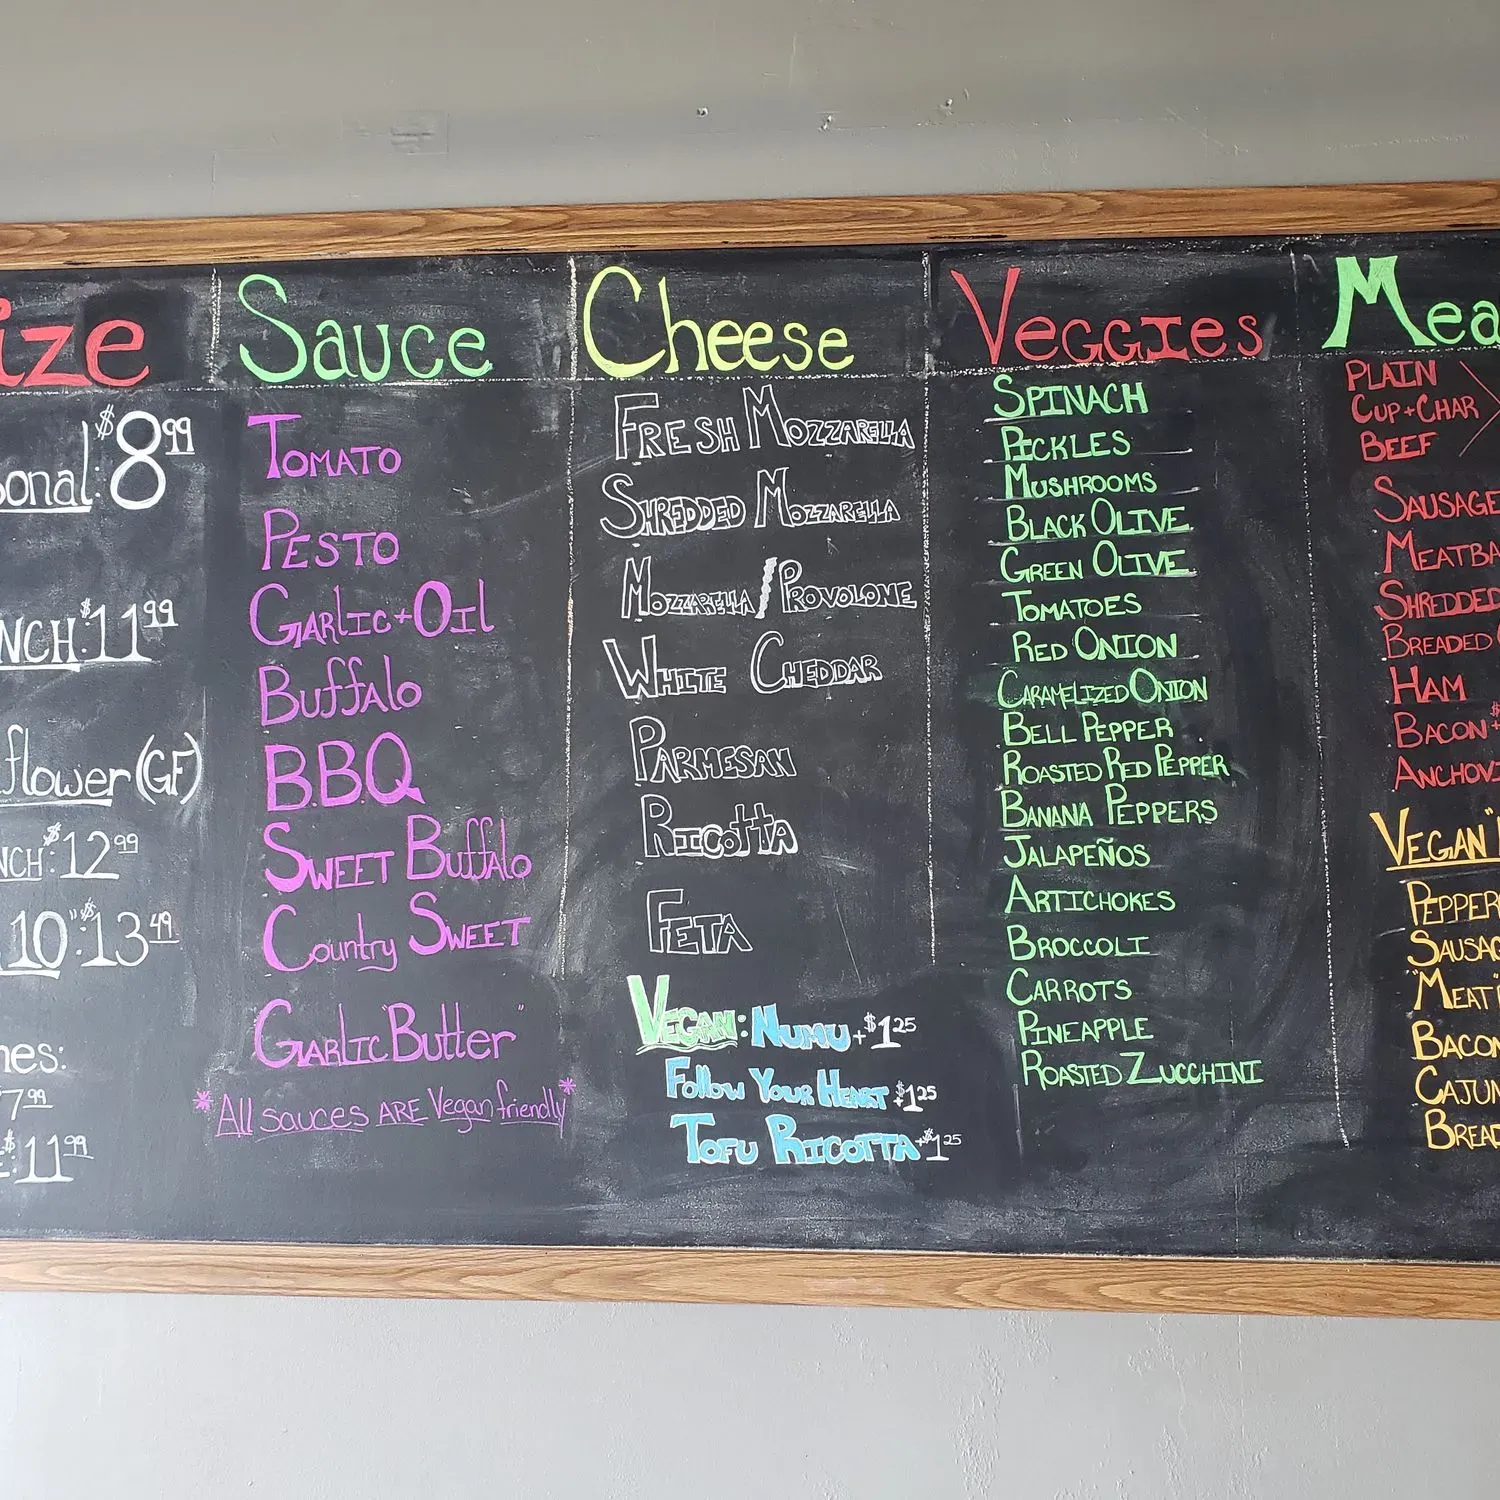 ize
sonal: $8.99
NCH: $11.99
flower (GF)
NCH: $12.99
10": $13.49
nes:
$7.99
E: $11.99
Sauce
TOMATO
PESTO
GARLIC + OIL
Buffalo
B.B.Q
SWEET Buffalo
Country SWEET
GARLIC "Butter"
*All sauces ARE Vegan friendly*
Cheese
FRESH MOZZARELLA
SHREDDED MOZZARELLA
MOZZARELLA/PROVOLONE
WHITE CHEDDAR
PARMESAN
RICOTTA
FETA
VEGAN: NUMU +$1.25
Follow YOUR HEART +$1.25
TOFU RICOTTA +$1.25
VEGGIES
SPINACH
PICKLES
MUSHROOMS
BLACK OLIVE
GREEN OLIVE
TOMATOES
RED ONION
CARAMELIZED ONION
BELL PEPPER
ROASTED RED PEPPER
BANANA PEPPERS
JALAPEÑOS
ARTICHOKES
BROCCOLI
CARROTS
PINEAPPLE
ROASTED ZUCCHINI
Mea
PLAIN
CUP + CHAR
BEEF
SAUSAGE
MEATBA
SHREDDED
BREADED
HAM
BACON +$
ANCHOVI
VEGAN "
PEPPER
SAUSAG
"MEAT"
BACON
CAJUN
BREAD